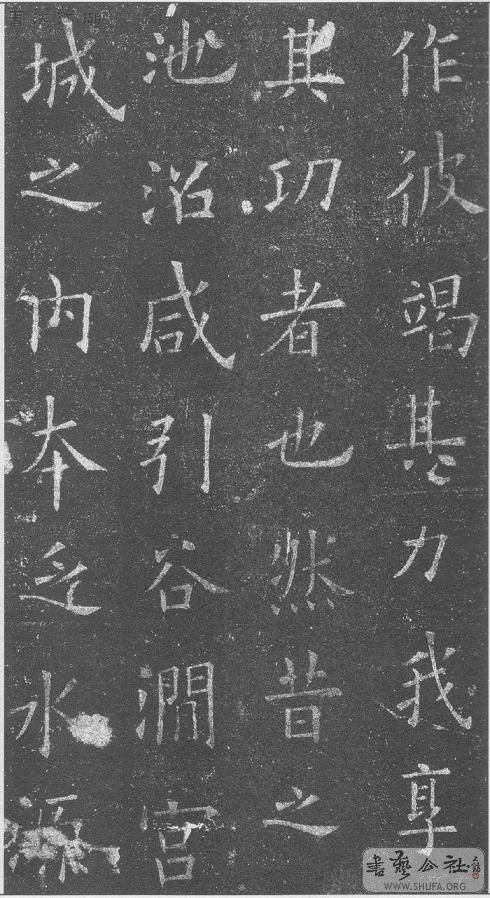 作彼竭其力我享
其功者也然昔之
池沼咸引谷澗宮
城之內本乏水源
書藝公社
WWW.SHUFA.ORG